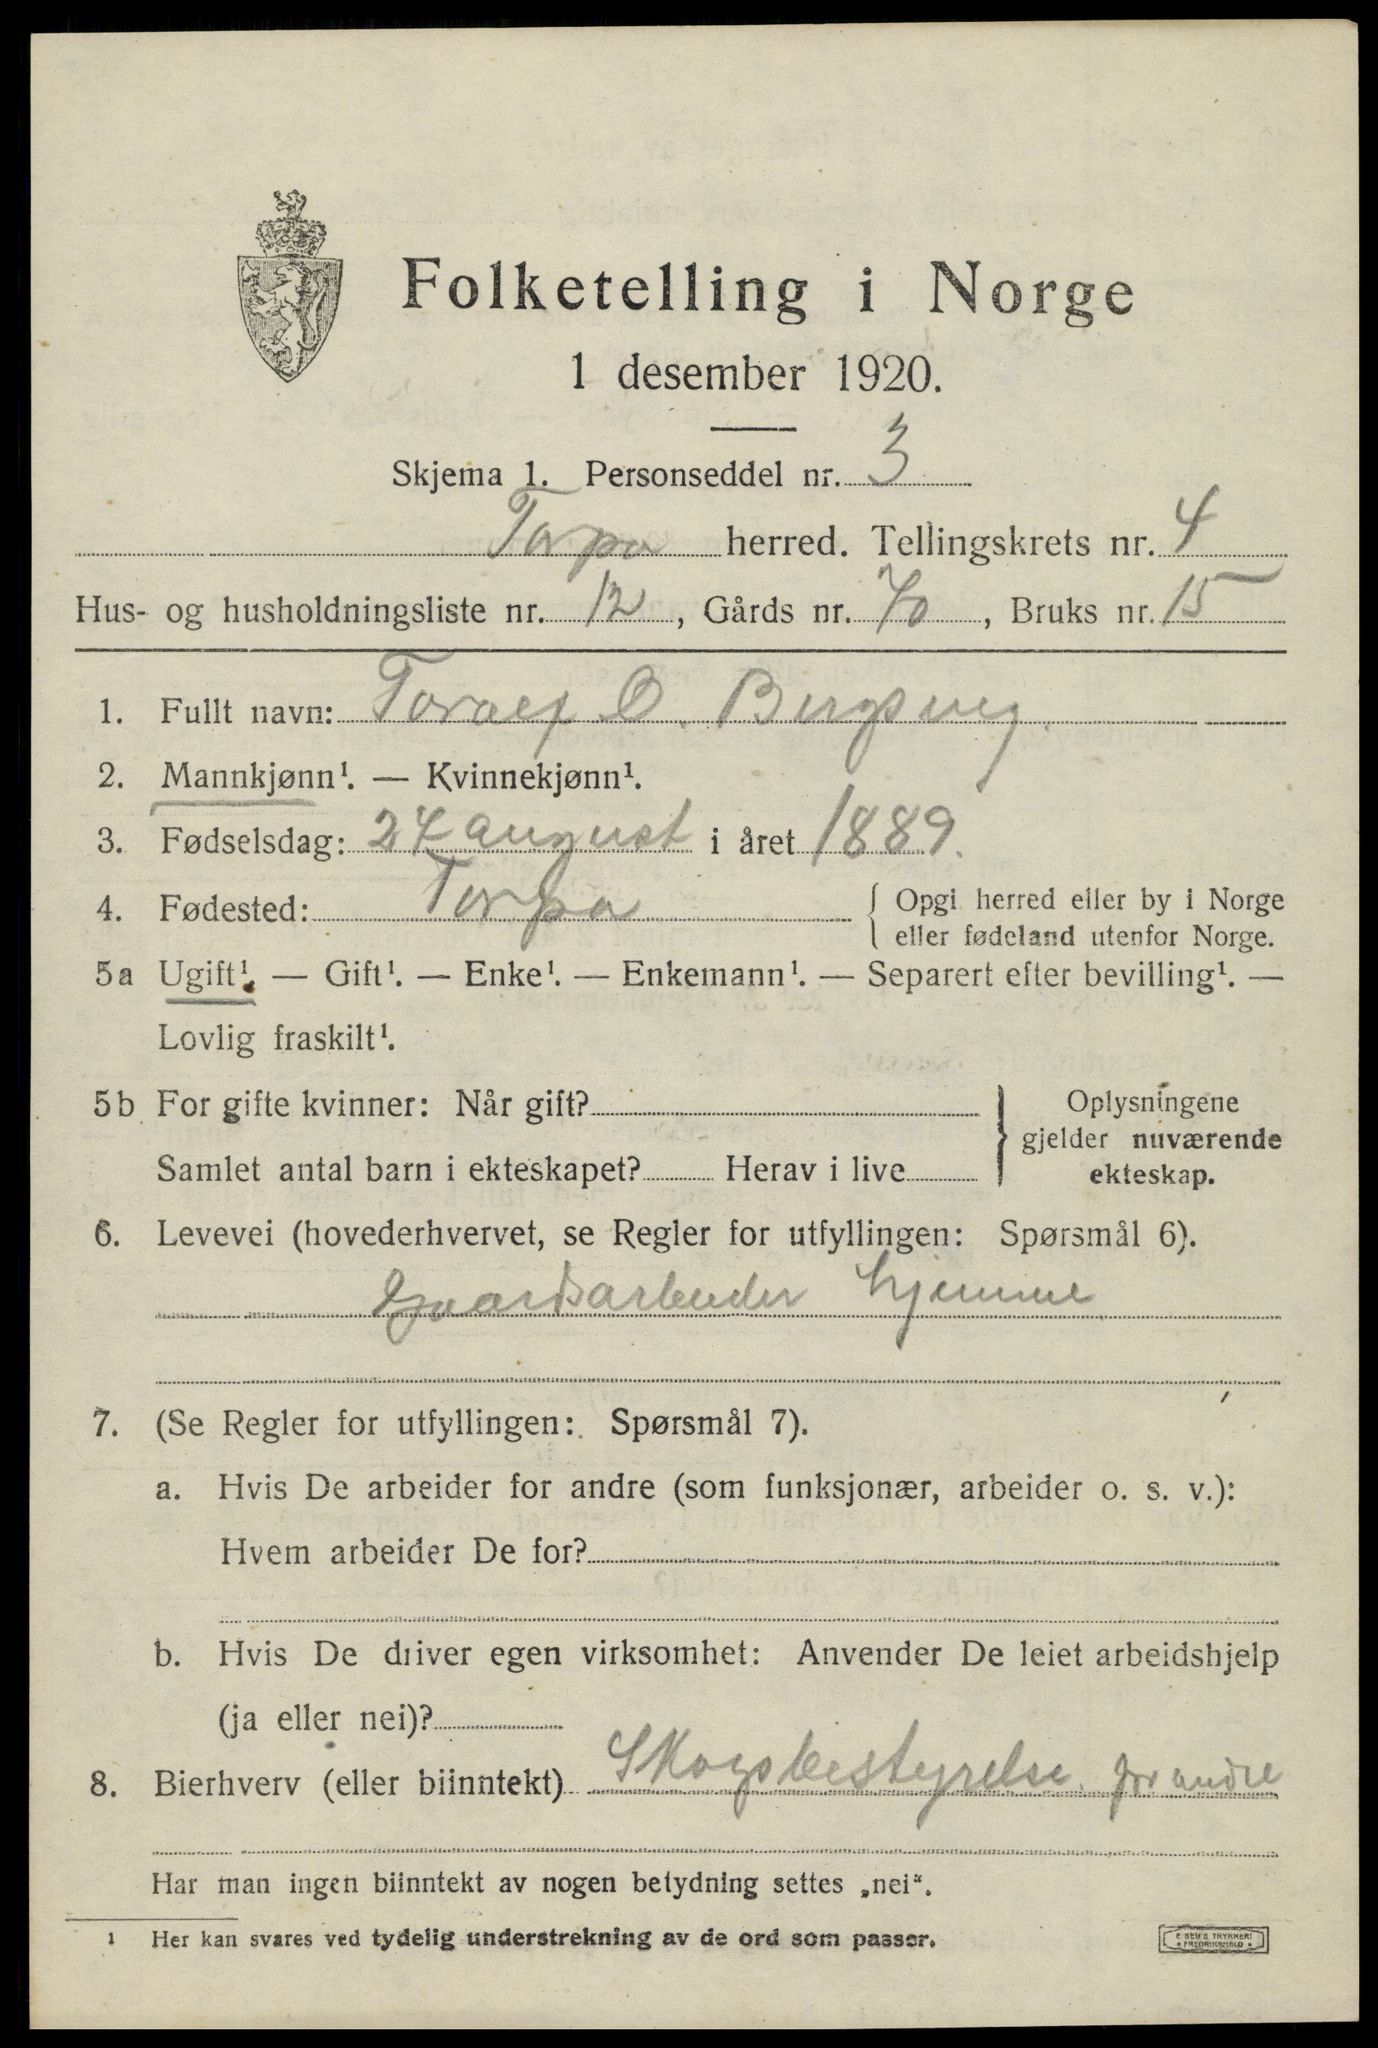 Folketelling i Norge
1 desember 1920.
Skjema 1. Personseddel nr. 3
Torpa herred. Tellingskrets nr. 4
Hus- og husholdningsliste nr. 12, Gårds nr. 70, Bruks nr. 15
1. Fullt navn: Toralf O. Bergsveg.
2. Mannkjønn¹. — Kvinnekjønn¹.
3. Fødselsdag: 24 august i året 1889.
4. Fødested: Torpa { Opgi herred eller by i Norge
eller fødeland utenfor Norge.
5a Ugift¹. — Gift¹. — Enke¹. — Enkemann¹. — Separert efter bevilling¹. —
Lovlig fraskilt¹.
5b For gifte kvinner: Når gift? } Oplysningene
gjelder nuværende
Samlet antal barn i ekteskapet? Herav i live ekteskap.
6. Levevei (hovederhvervet, se Regler for utfyllingen: Spørsmål 6).
Gaardsarbeider hjemme
7. (Se Regler for utfyllingen: Spørsmål 7).
a. Hvis De arbeider for andre (som funksjonær, arbeider o. s. v.):
Hvem arbeider De for?
b. Hvis De driver egen virksomhet: Anvender De leiet arbeidshjelp
(ja eller nei)?
8. Bierhverv (eller biinntekt) Skogsbestyrelse for andre
Har man ingen biinntekt av nogen betydning settes „nei“.
1 Her kan svares ved tydelig understrekning av de ord som passer.
E SEM'S TRYKKERI
FREDRIKSHALD